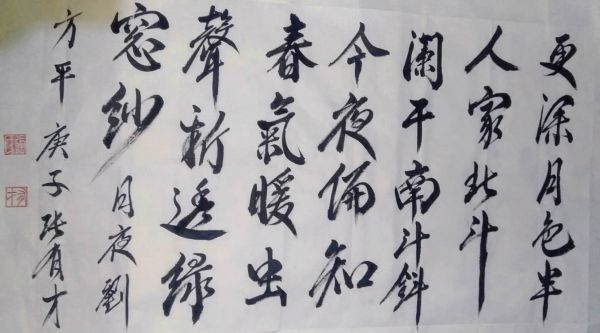 更深月色半
人家北斗
阑干南斗斜
今夜偏知
春氣暖虫
聲新透綠
窓紗 月夜劉
方平 庚子張有才